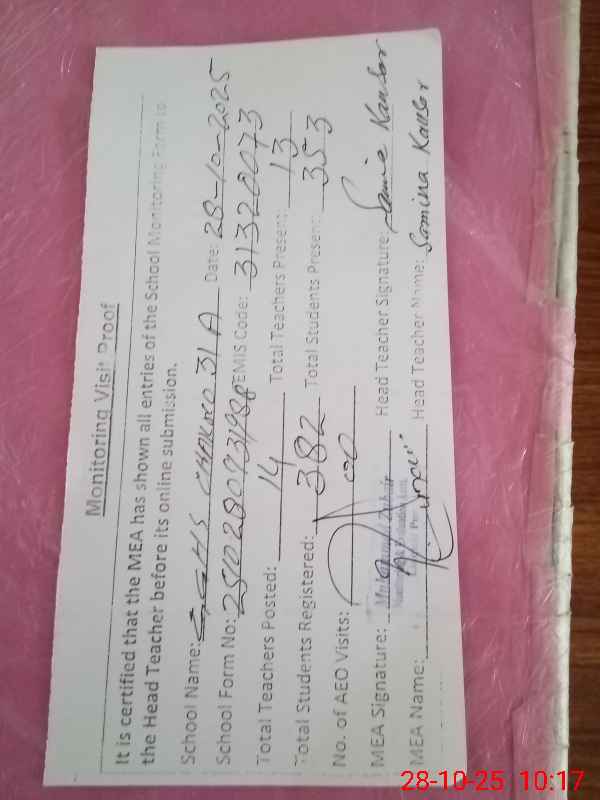 Monitoring Visit Proof
It is certified that the MEA has shown all entries of the School Monitoring Form to
the Head Teacher before its online submission.
School Name: GGHS CHAK NO.31 A Date: 28-10-2025
School Form No: EMIS Code: 31320073
Total Teachers Posted: 14 Total Teachers Present: 13
Total Students Registered: 382 Total Students Present: 353
No. of AEO Visits: 00
MEA Signature: Head Teacher Signature: Samina Kausar
MEA Name: Head Teacher Name: Samina Kausar
28-10-25 10:17